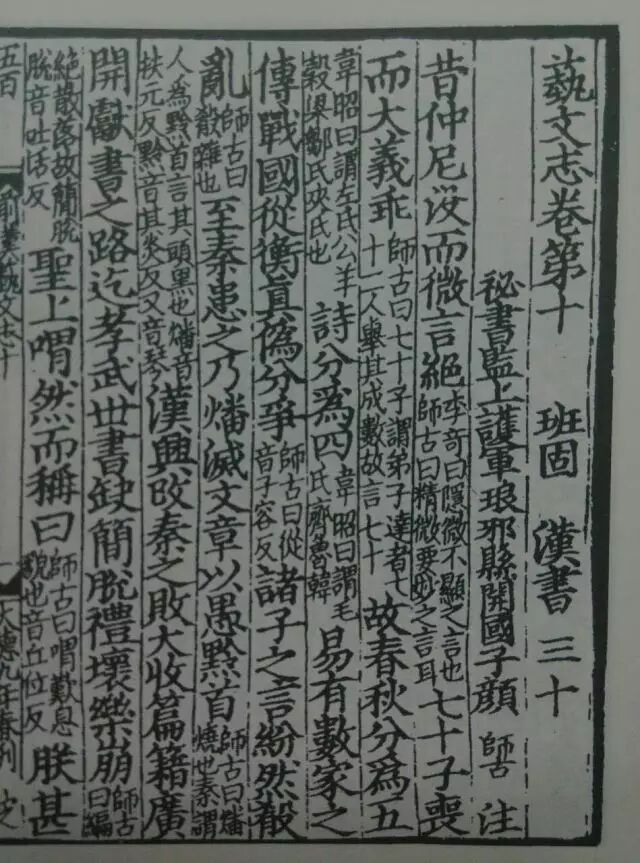 藝文志卷第十 班固 漢書 三十
秘書監上護軍琅邪縣開國子顏 師古 注
昔仲尼沒而微言絕李奇曰隱微不顯之言也師古曰精微要妙之言耳七十子喪
而大義乖師古曰七十子謂弟子達者七十二人舉其成數故言七十故春秋分爲五
韋昭曰謂左氏公羊穀梁鄒氏夾氏也詩分爲四韋昭曰謂毛氏齊魯韓易有數家之
傳戰國從衡眞僞分爭師古曰從音子容反諸子之言紛然殽
亂師古曰殽雜也至秦患之乃燔滅文章以愚黔首師古曰燔燒也秦謂
人爲黔首言其頭黑也燔音扶元反黔音其炎反又音琴漢興改秦之敗大收篇籍廣
開獻書之路迄孝武世書缺簡脫禮壞樂崩師古曰編
絕散落故簡脫脫音吐活反聖上喟然而稱曰師古曰喟歎息貌也音丘位反朕甚
五百